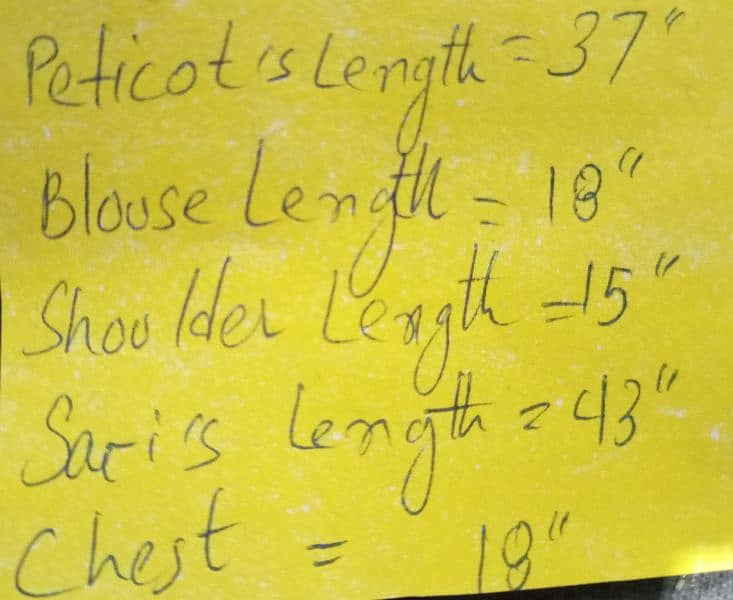 Peticot's Length = 37"
Blouse Length = 18"
Shoulder Length = 15"
Sari's Length = 43"
Chest = 18"